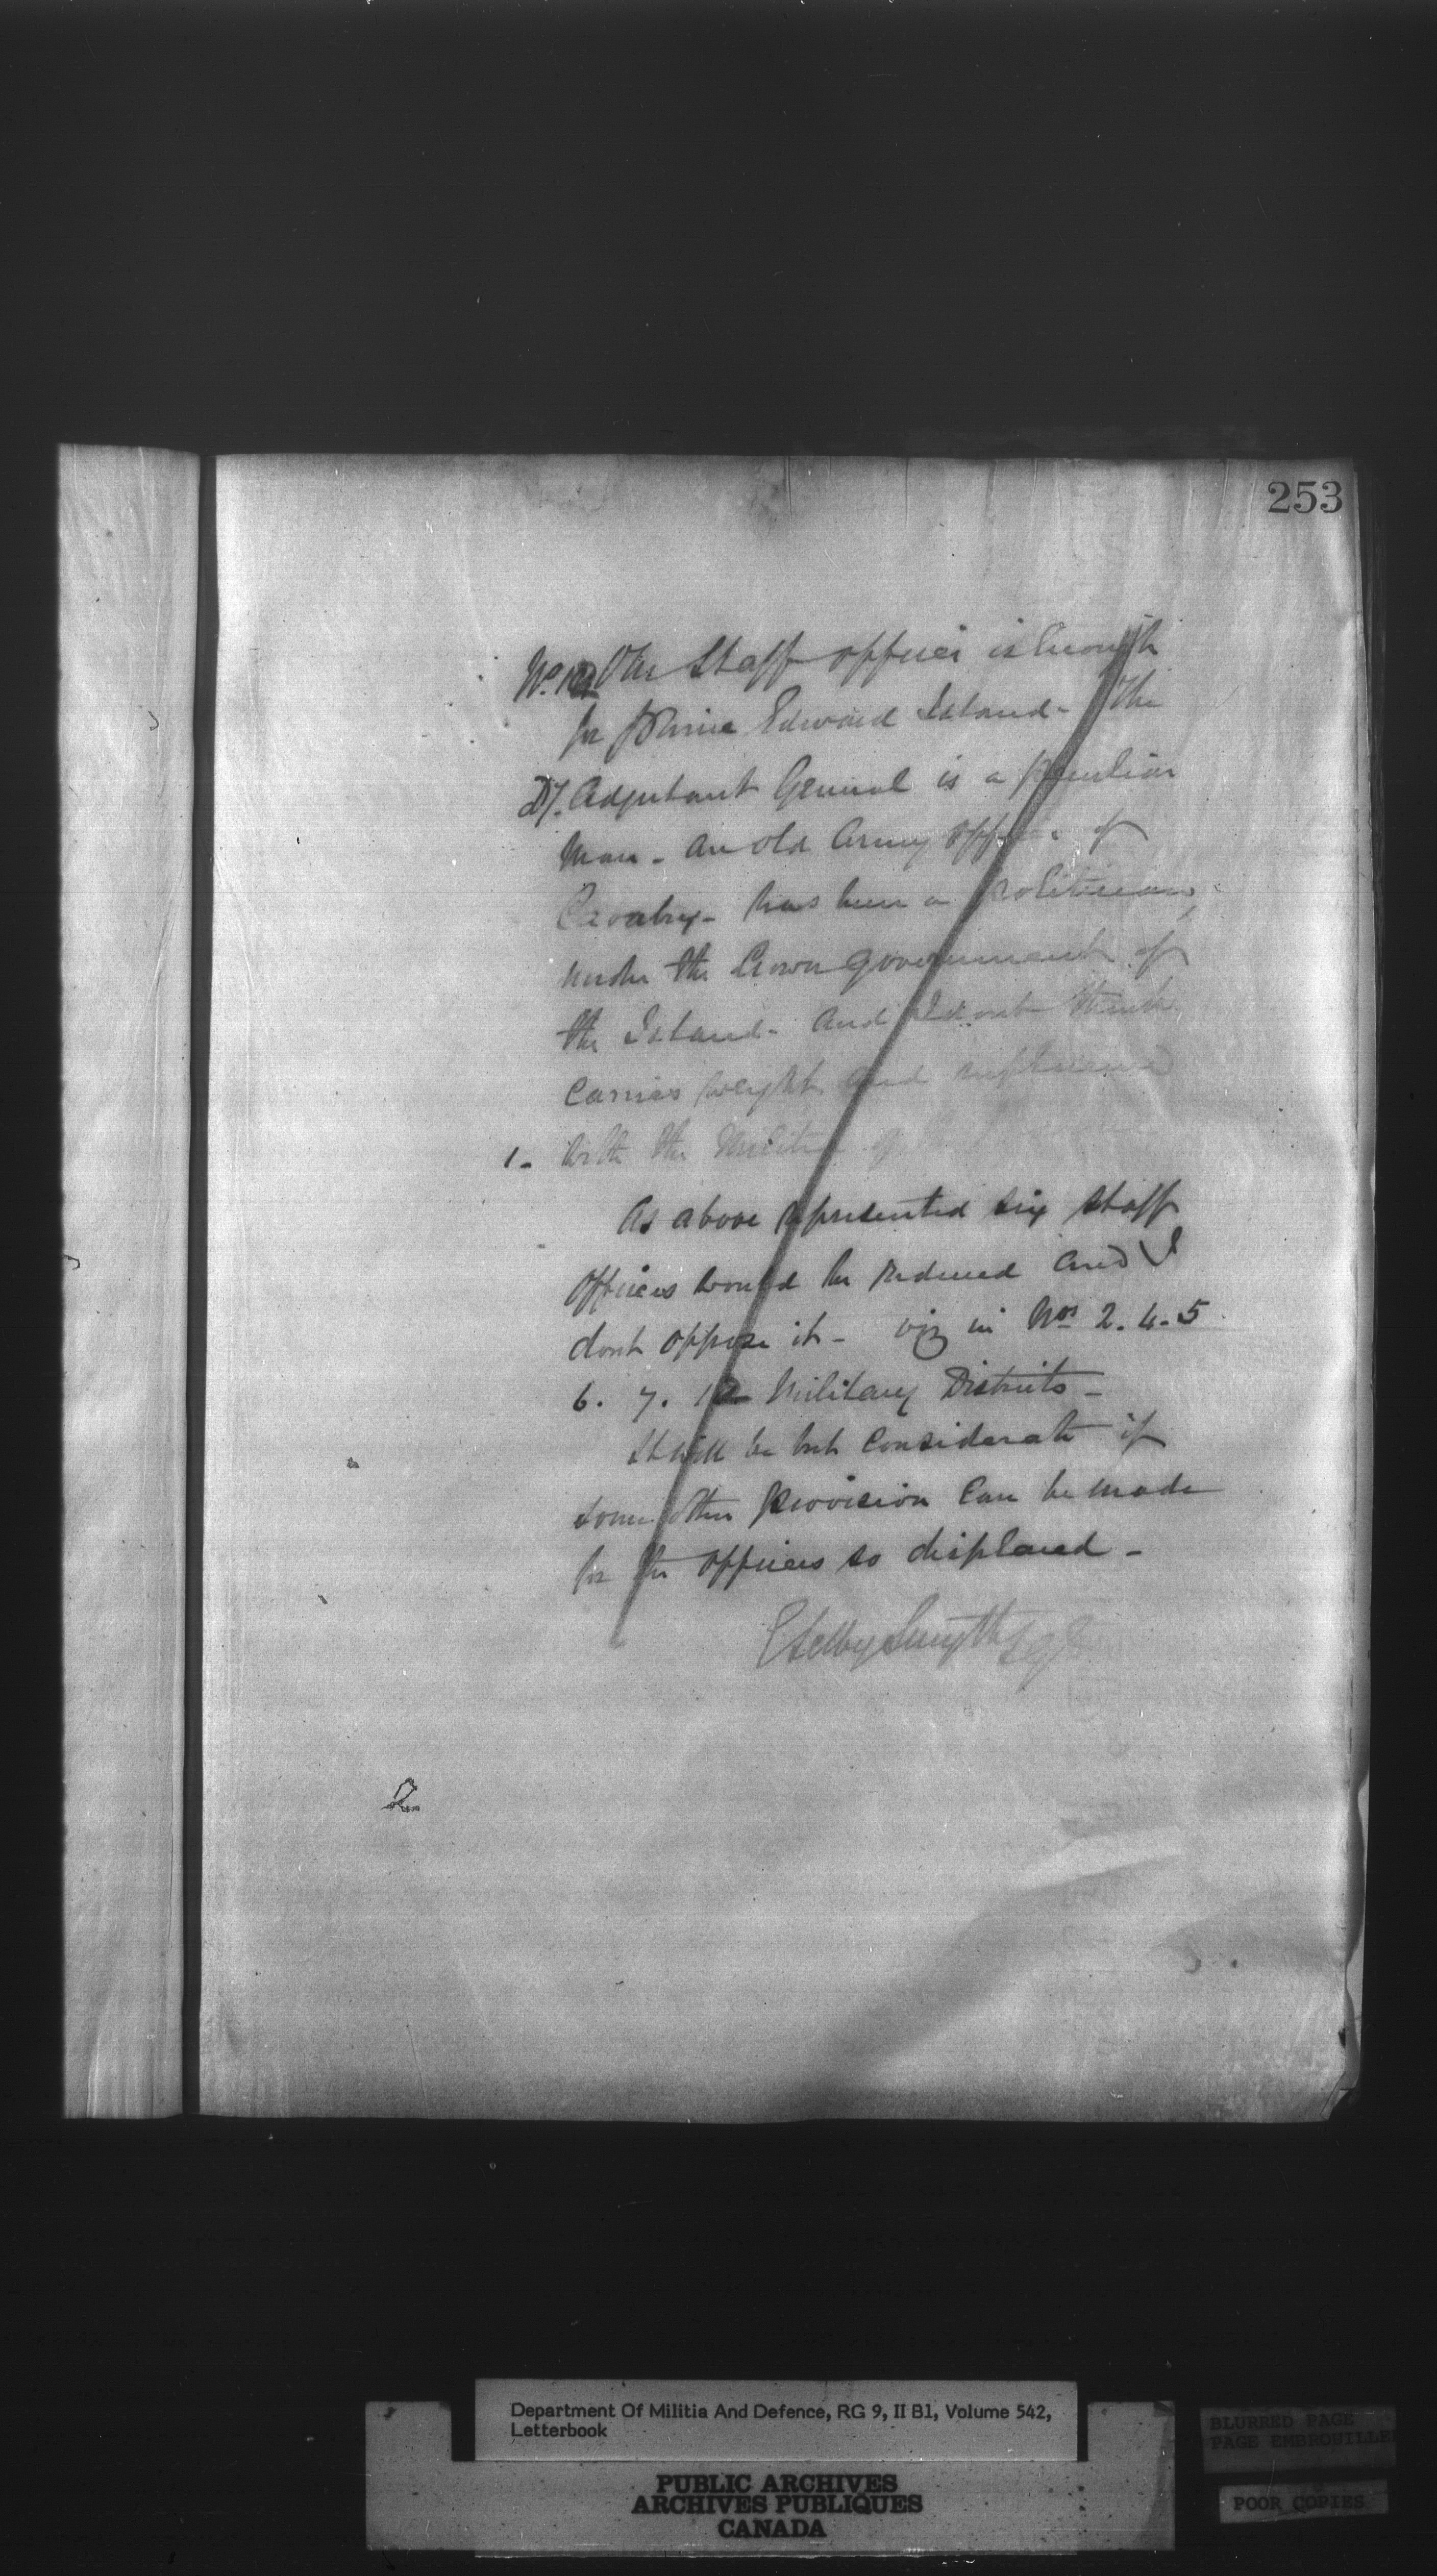 253
No. 12 One Staff officer is enough
for Prince Edward Island - The
Dy. Adjutant General is a peculiar
man - an old Army officer of
Cavalry - has been a politician,
under the Crown government of
the Island - and I dont think
carries weight and influence
1 - with the Militia of the
As above represented six staff
officers would be reduced and I
dont oppose it - viz in Nos 2. 4. 5
6. 7. 12 Military Districts -
It will be but considerate if
some other provision can be made
for the officers so displaced -
E Selby Smyth
2
Department Of Militia And Defence, RG 9, II B1, Volume 542,
Letterbook
PUBLIC ARCHIVES
ARCHIVES PUBLIQUES
CANADA
BLURRED PAGE
PAGE EMBROUILLEE
POOR COPIES